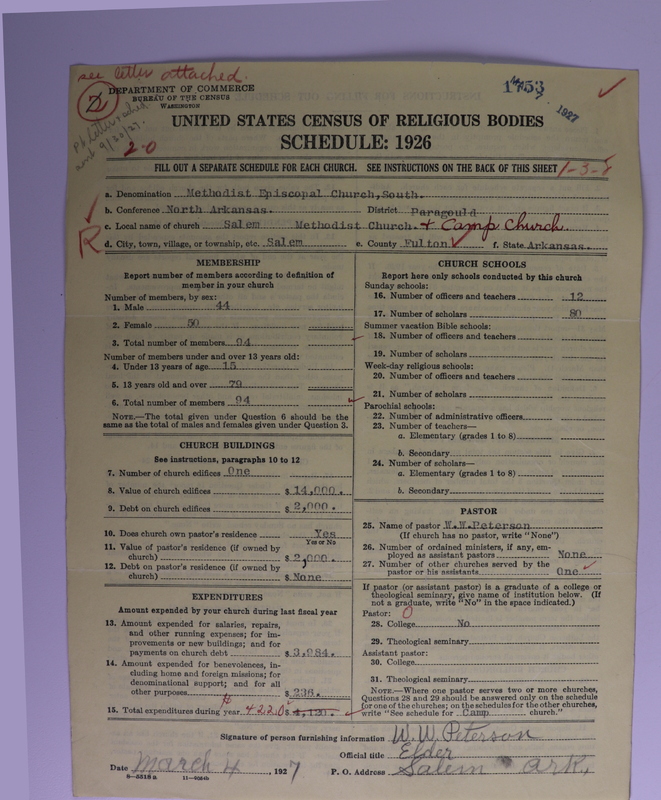 see letter attached.
2
DEPARTMENT OF COMMERCE
BUREAU OF THE CENSUS
WASHINGTON
1927
UNITED STATES CENSUS OF RELIGIOUS BODIES
SCHEDULE: 1926
2-0
FILL OUT A SEPARATE SCHEDULE FOR EACH CHURCH. SEE INSTRUCTIONS ON THE BACK OF THIS SHEET
a. Denomination Methodist Episcopal Church, South.
b. Conference North Arkansas. District Paragould
c. Local name of church Salem Methodist Church. + Camp Church
R
d. City, town, village, or township, etc. Salem e. County Fulton f. State Arkansas.
MEMBERSHIP
Report number of members according to definition of
member in your church
Number of members, by sex:
1. Male 44
2. Female 50
3. Total number of members 94
Number of members under and over 13 years old:
4. Under 13 years of age 15
5. 13 years old and over 79
6. Total number of members 94
NOTE.—The total given under Question 6 should be the
same as the total of males and females given under Question 3.
CHURCH BUILDINGS
See instructions, paragraphs 10 to 12
7. Number of church edifices One
8. Value of church edifices $ 14,000.
9. Debt on church edifices $ 2,000.
10. Does church own pastor's residence Yes
Yes or No
11. Value of pastor's residence (if owned by
church) $ 2,000.
12. Debt on pastor's residence (if owned by
church) $ None
EXPENDITURES
Amount expended by your church during last fiscal year
13. Amount expended for salaries, repairs,
and other running expenses; for im-
provements or new buildings; and for
payments on church debt $ 3,984.
14. Amount expended for benevolences, in-
cluding home and foreign missions; for
denominational support; and for all
other purposes $ 236.
15. Total expenditures during year. $4220 $ 4,120.
CHURCH SCHOOLS
Report here only schools conducted by this church
Sunday schools:
16. Number of officers and teachers 12
17. Number of scholars 80
Summer vacation Bible schools:
18. Number of officers and teachers
19. Number of scholars
Week-day religious schools:
20. Number of officers and teachers
21. Number of scholars
Parochial schools:
22. Number of administrative officers
23. Number of teachers—
a. Elementary (grades 1 to 8)
b. Secondary
24. Number of scholars—
a. Elementary (grades 1 to 8)
b. Secondary
PASTOR
25. Name of pastor W.W.Peterson
(If church has no pastor, write "None")
26. Number of ordained ministers, if any, em-
ployed as assistant pastors None
27. Number of other churches served by the
pastor or his assistants One
If pastor (or assistant pastor) is a graduate of a college or
theological seminary, give name of institution below. (If
not a graduate, write "No" in the space indicated.)
Pastor: 0
28. College No
29. Theological seminary
Assistant pastor:
30. College
31. Theological seminary
NOTE.—Where one pastor serves two or more churches,
Questions 28 and 29 should be answered only on the schedule
for one of the churches; on the schedules for the other churches,
write "See schedule for Camp church."
Signature of person furnishing information W. W. Peterson
Official title Elder
Date March 4, 1927 P. O. Address Salem Ark.
8—5318 a 11—9064b